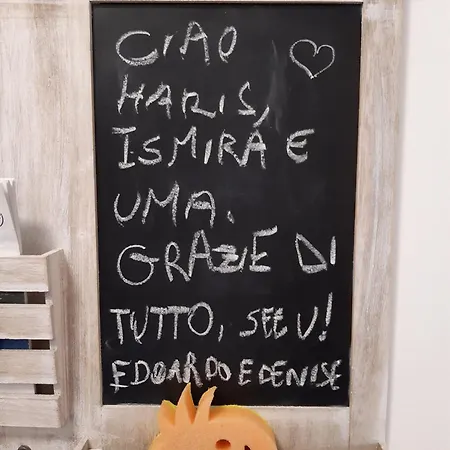 CIAO
HARIS,
ISMIRA E
UMA.
GRAZIE DI
TUTTO, SEE U!
EDOARDO E DENISE